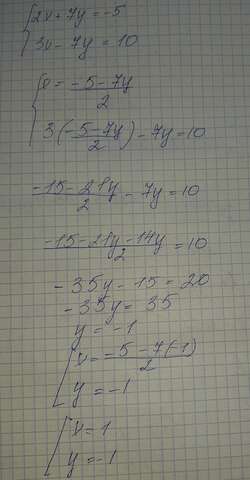 {2x + 7y = -5
{3x - 7y = 10
{x = (-5 - 7y)/2
{3((-5 - 7y)/2) - 7y = 10
(-15 - 21y)/2 - 7y = 10
(-15 - 21y - 14y)/2 = 10
-35y - 15 = 20
-35y = 35
y = -1
{x = (-5 - 7(-1))/2
{y = -1
{x = 1
{y = -1